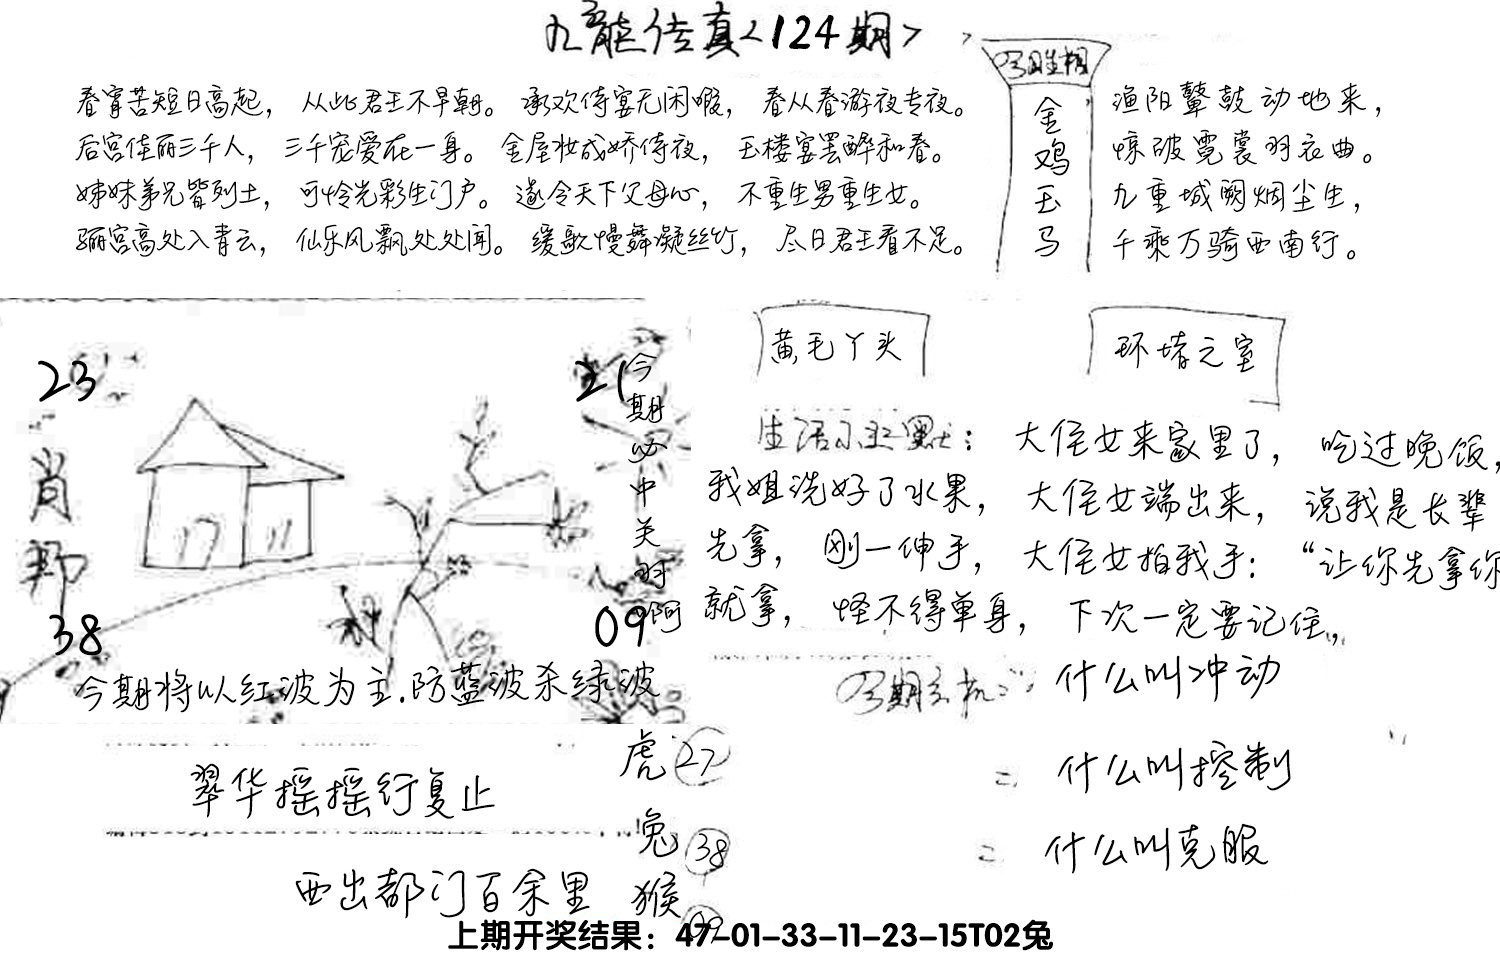 九龙传真<124期>
今期生相
春宵苦短日高起，从此君王不早朝。承欢侍宴无闲暇，春从春游夜专夜。
后宫佳丽三千人，三千宠爱在一身。金屋妆成娇侍夜，玉楼宴罢醉和春。
姊妹弟兄皆列土，可怜光彩生门户。遂令天下父母心，不重生男重生女。
骊宫高处入青云，仙乐风飘处处闻。缓歌慢舞凝丝竹，尽日君王看不足。
金鸡玉马
渔阳鼙鼓动地来，
惊破霓裳羽衣曲。
九重城阙烟尘生，
千乘万骑西南行。
23
21
肖郑
38
09
今期必中关羽啊
今期将以红波为主.防蓝波杀绿波
黄毛丫头
环堵之室
生活小幽默：大侄女来家里了，吃过晚饭，
我姐洗好了水果，大侄女端出来，说我是长辈
先拿，刚一伸手，大侄女拍我手：“让你先拿你
就拿，怪不得单身，下次一定要记住，，
今期玄机：什么叫冲动
= 什么叫控制
= 什么叫克服
翠华摇摇行复止
西出都门百余里
虎 27
兔 38
猴 09
上期开奖结果：47-01-33-11-23-15T02兔